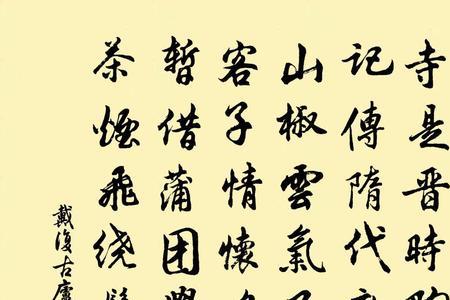 寺是晋時陶
記傳隋代
山椒雲氣
客子情懷
暫借蒲团
茶煙飛绕
戴復古廬